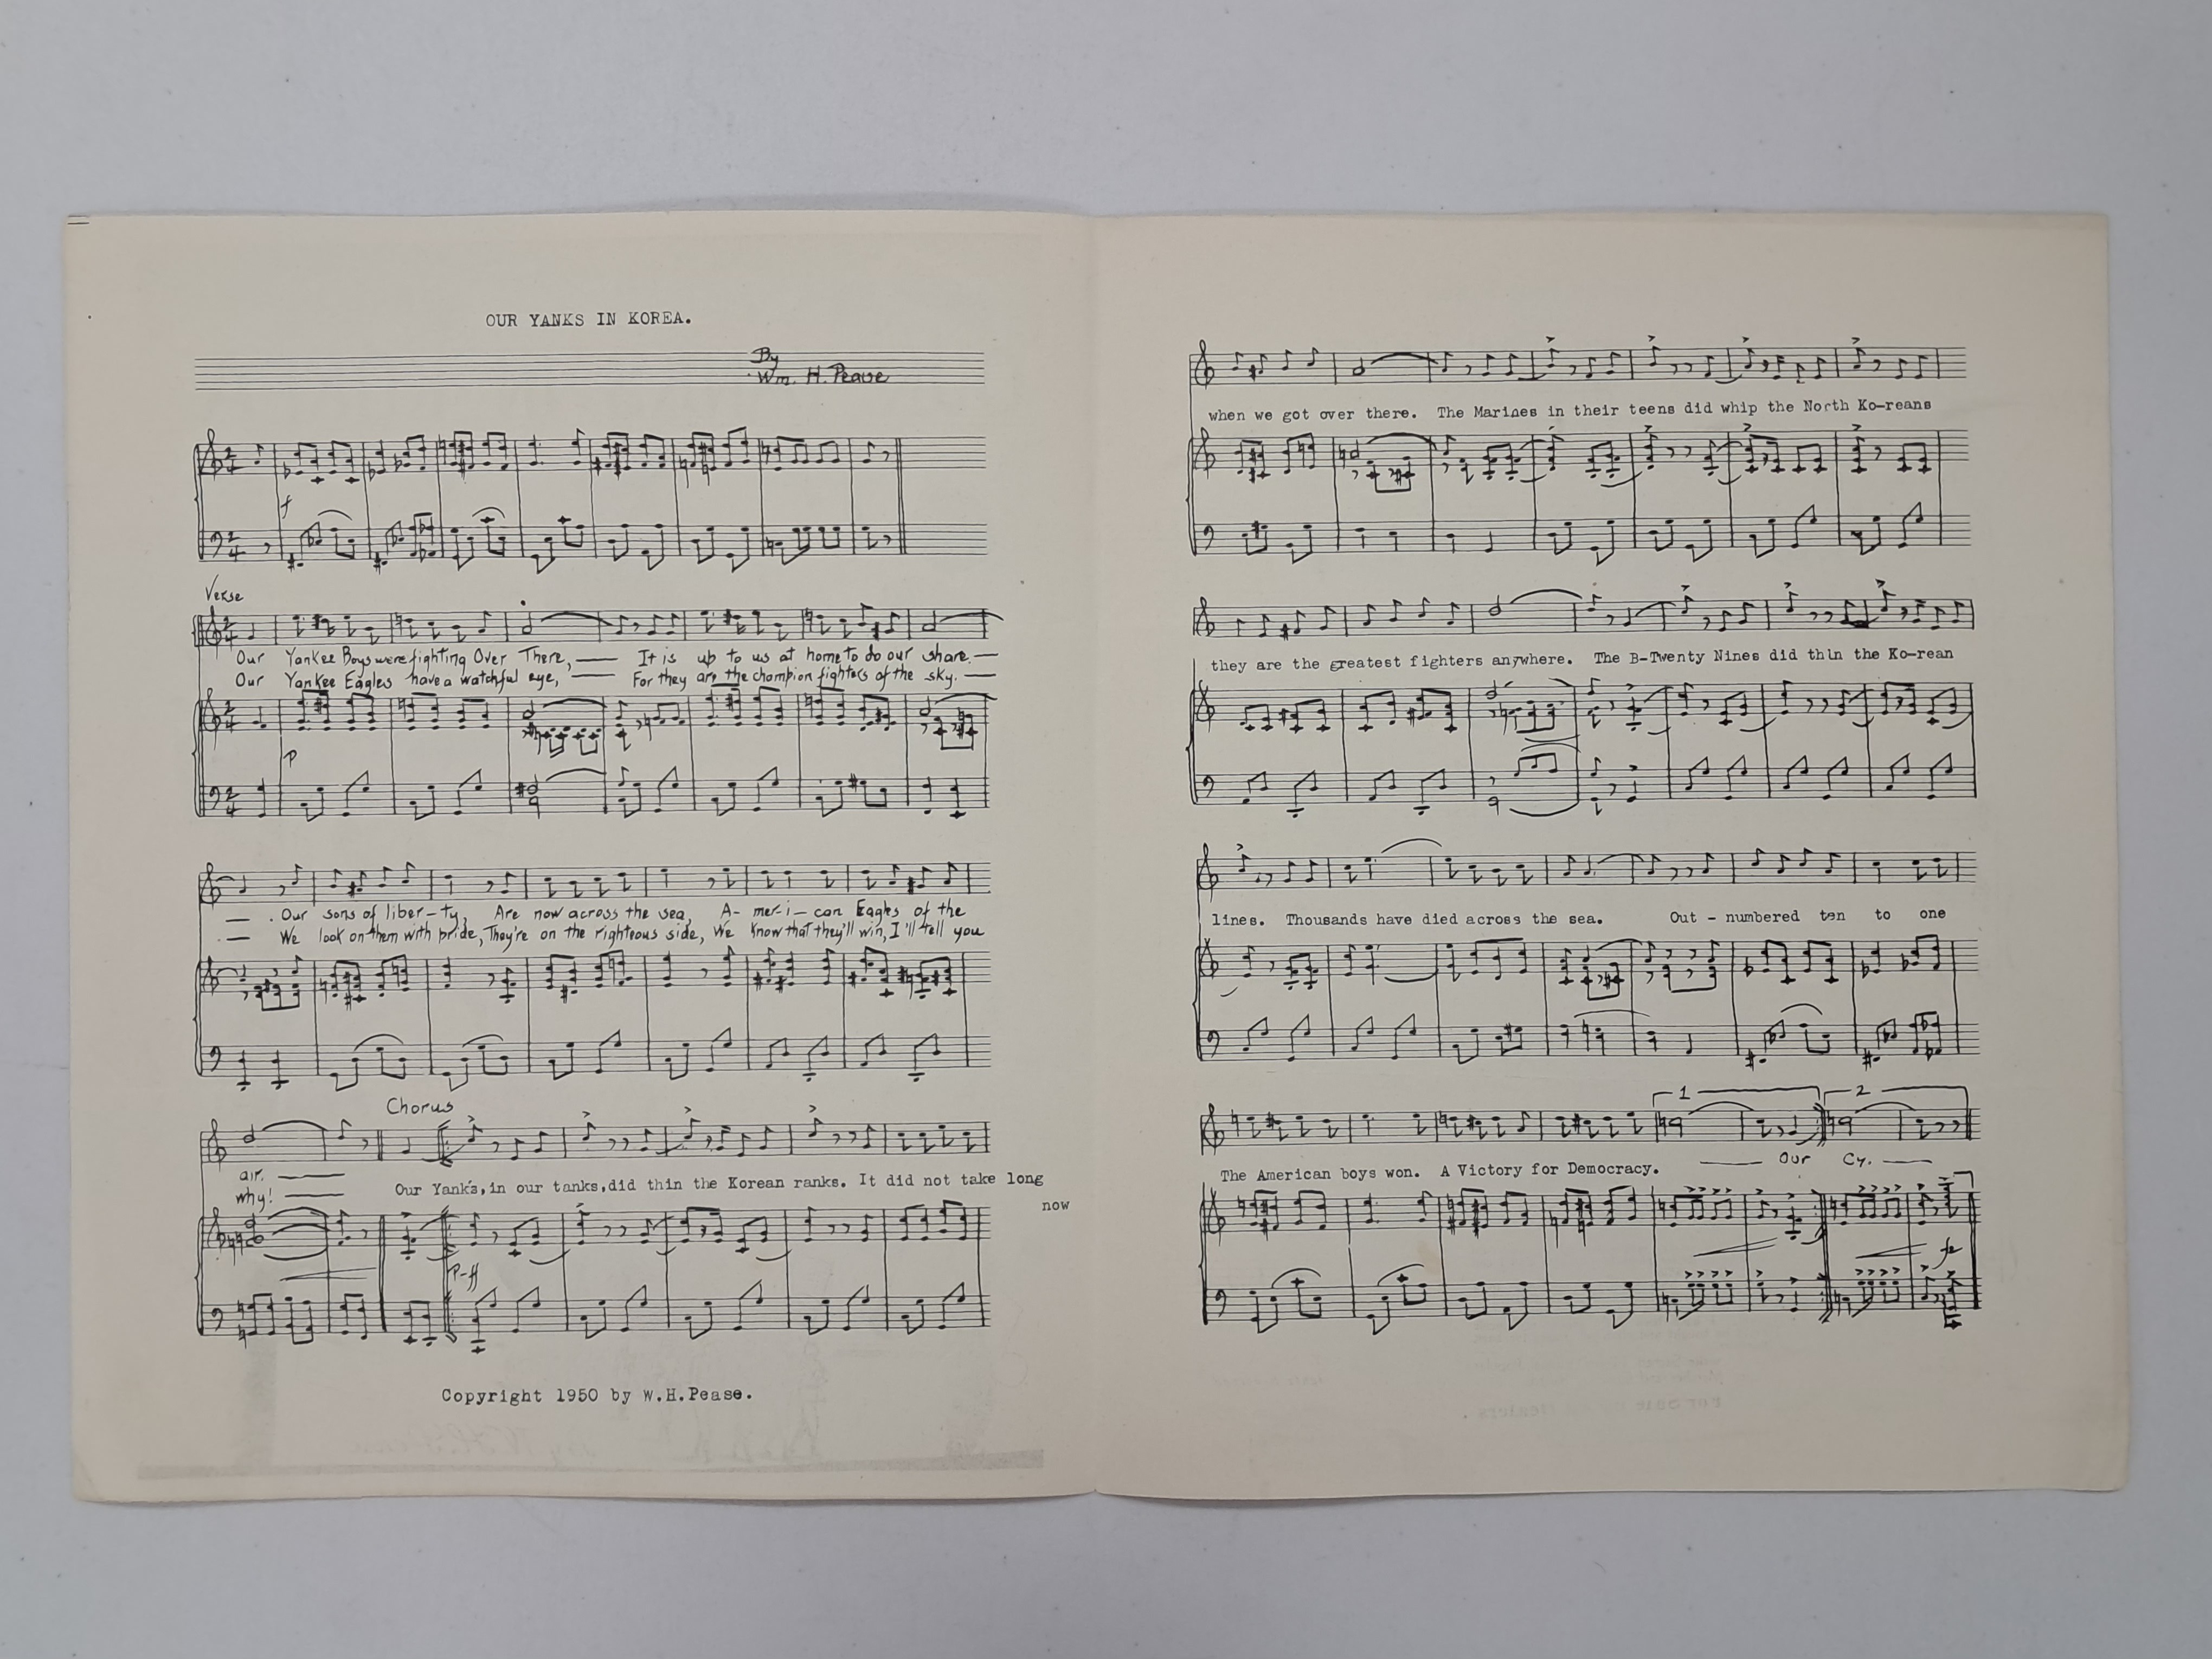 OUR YANKS IN KOREA.
By
Wm. H. Pease
f
Verse
Our Yankee Boys were fighting Over There, — It is up to us at home to do our share. —
Our Yankee Eagles have a watchful eye, — For they are the champion fighters of the sky. —
p
— . Our sons of liber-ty, Are now across the sea, A- mer-i-can Eagles of the
— We look on them with pride, They're on the righteous side, We know that they'll win, I'll tell you
Chorus
air. —
why! —
Our Yank's, in our tanks, did thin the Korean ranks. It did not take long
now
P-ff
Copyright 1950 by W.H.Pease.
when we got over there. The Marines in their teens did whip the North Ko-reans
they are the greatest fighters anywhere. The B-Twenty Nines did thin the Ko-rean
lines. Thousands have died across the sea. Out - numbered ten to one
1 2
The American boys won. A Victory for Democracy. — Our Cy. —